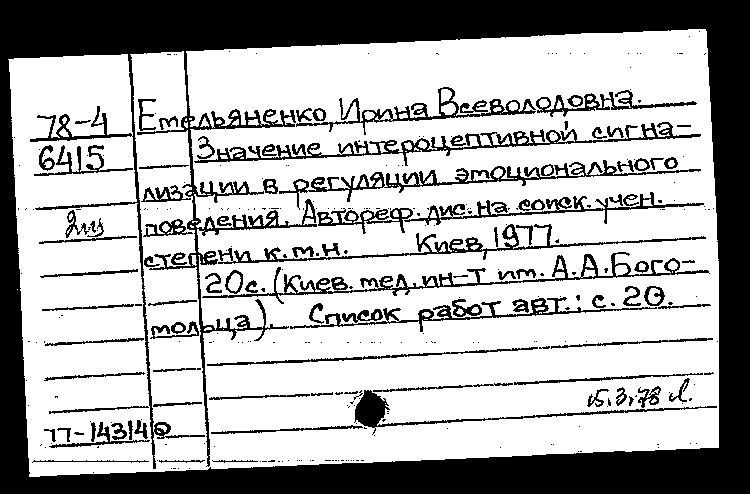 78-4 Емельяненко, Ирина Всеволодовна.
6415 Значение интероцептивной сигна-
лизации в регуляции эмоционального
2 поведения. Автореф. дис. на соиск. учен.
степени к.м.н. Киев, 1977.
20с. (Киев. мед. ин-т им. А.А.Бого-
мольца). Список работ авт.: с. 20.
15.3.78
77-14314